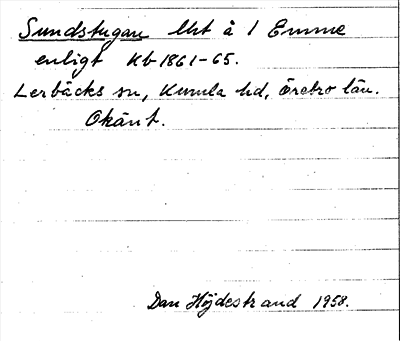 Sundstugan lht å 1 Emme
enligt Kb 1861-65.
Lerbäcks sn, Kumla hd, Örebro län.
Okänt.
Dan Höjdestrand 1958.